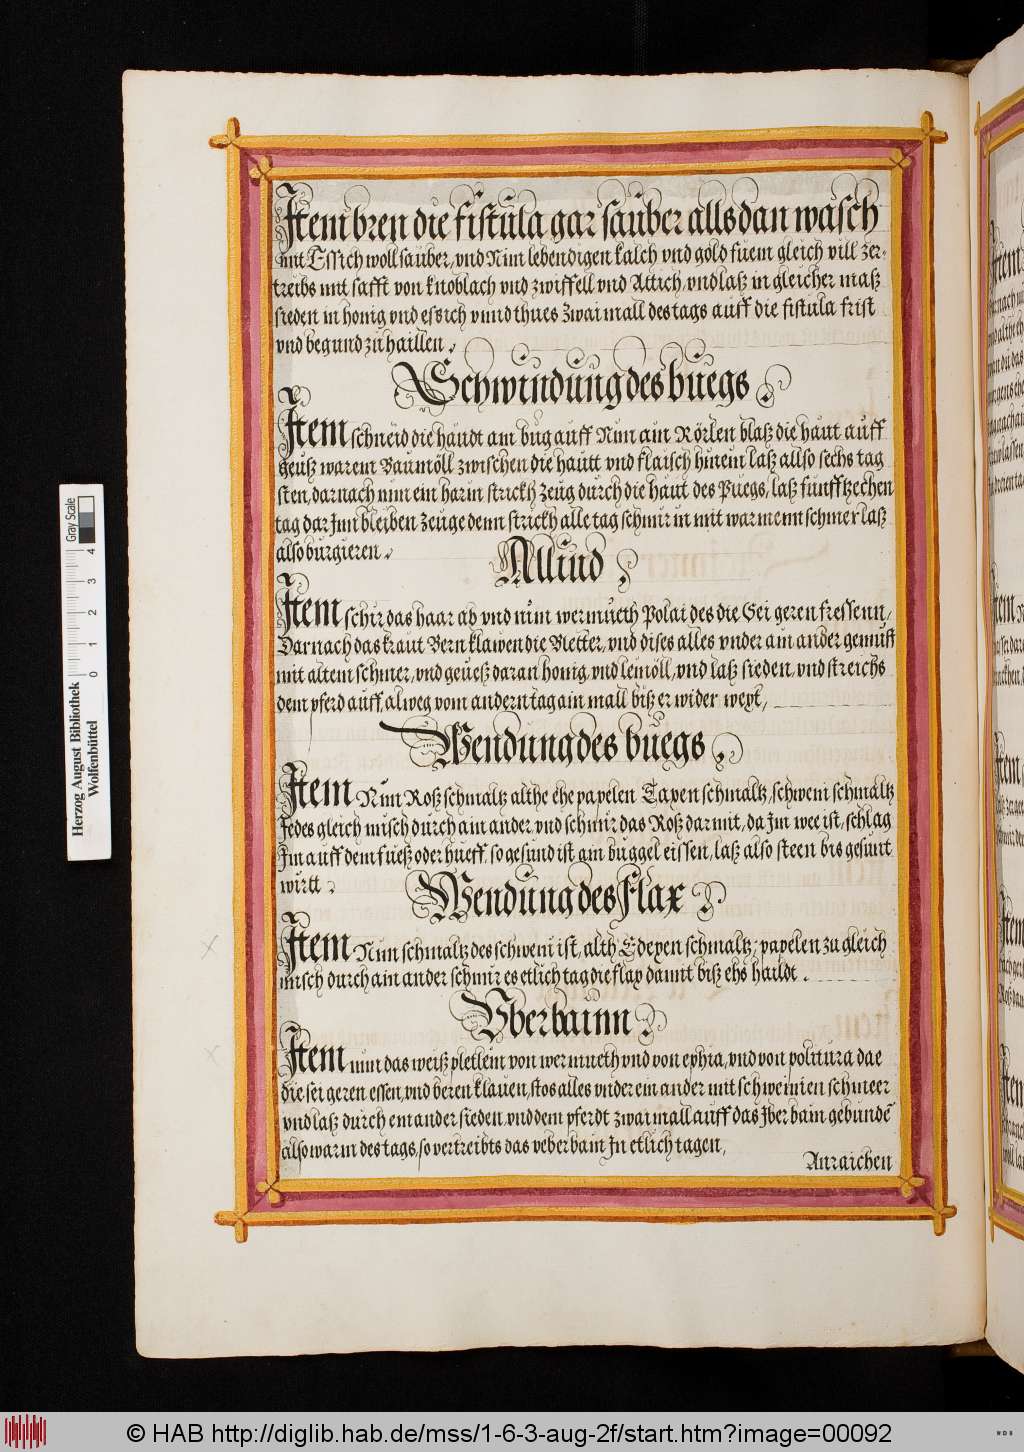 Item bren die fistula gar sauber allsdan wasch
mit Essich woll sauber, vnd Nim lebendigen kalch vnd gold fuem gleich vill zer-
treibs mit safft von knoblach vnd zwiffell vnd Attich, vnd laß in gleicher maß
sieden in honig vnd essich vnnd thues zwaimall des tags auff die fistula frist
vnd begund zu haillen.
Schwindung des buegs
Item schneid die haudt am bug auff Nim ain Rörlen blaß die haut auff
geuß warem Baumöll zwischen die hautt vnd flaisch hinein laß allso sechs tag
sten, darnach nim ein harin strickh zeug durch die haut des Puegs, laß funfftzechen
tag dar Inn bleiben zeuge denn strickh alle tag schmir in mit warmenn schmer laß
also burgieren.
Allind
Item schir das haar ab vnd nim wermueth Polai des die Gei geren fressenn,
Darnach das kraut Bern klawen die Bletter, vnd dises alles vnder ain ander gemust
mit altem schmer, vnd geueß daran honig, vnd lemöll, vnd laß sieden, vnd streichs
dem pferd auff, alweg vom andern tag ain mall biß er wider wext,
Wendung des buegs
Item Nim Roß schmaltz althe ehe papelen Taxen schmaltz, schweni schmaltz
Jedes gleich misch durch ain ander vnd schmir das Roß darmit, da Im wee ist, schlag
Im auff dem fueß oder hueff, so gesund ist am buggel eissen, laß also steen bis gesunt
wirtt.
Wendung des flax
Item Nim schmaltz des schweni ist, alth Edexen schmaltz, papelen zu gleich
misch durch ain ander schmir es etlich tag die flax damit biß ehs haildt.
Vberbainn
Item nim das weiß pletlein von wermueth vnd von ephia, vnd von politura dae
die sei geren essen, vnd beren klauen, stos alles vnder ein ander mit schweinien schmeer
vnd laß durch em ander sieden, vnd dem pferdt zwaimall auff das Jberbain gebundē
also warm des tags, so vertreibts das veberbain In etlich tagen,
Anraichen
Herzog August Bibliothek
Wolfenbüttel
0 1 2 3 4
Gray Scale
© HAB http://diglib.hab.de/mss/1-6-3-aug-2f/start.htm?image=00092